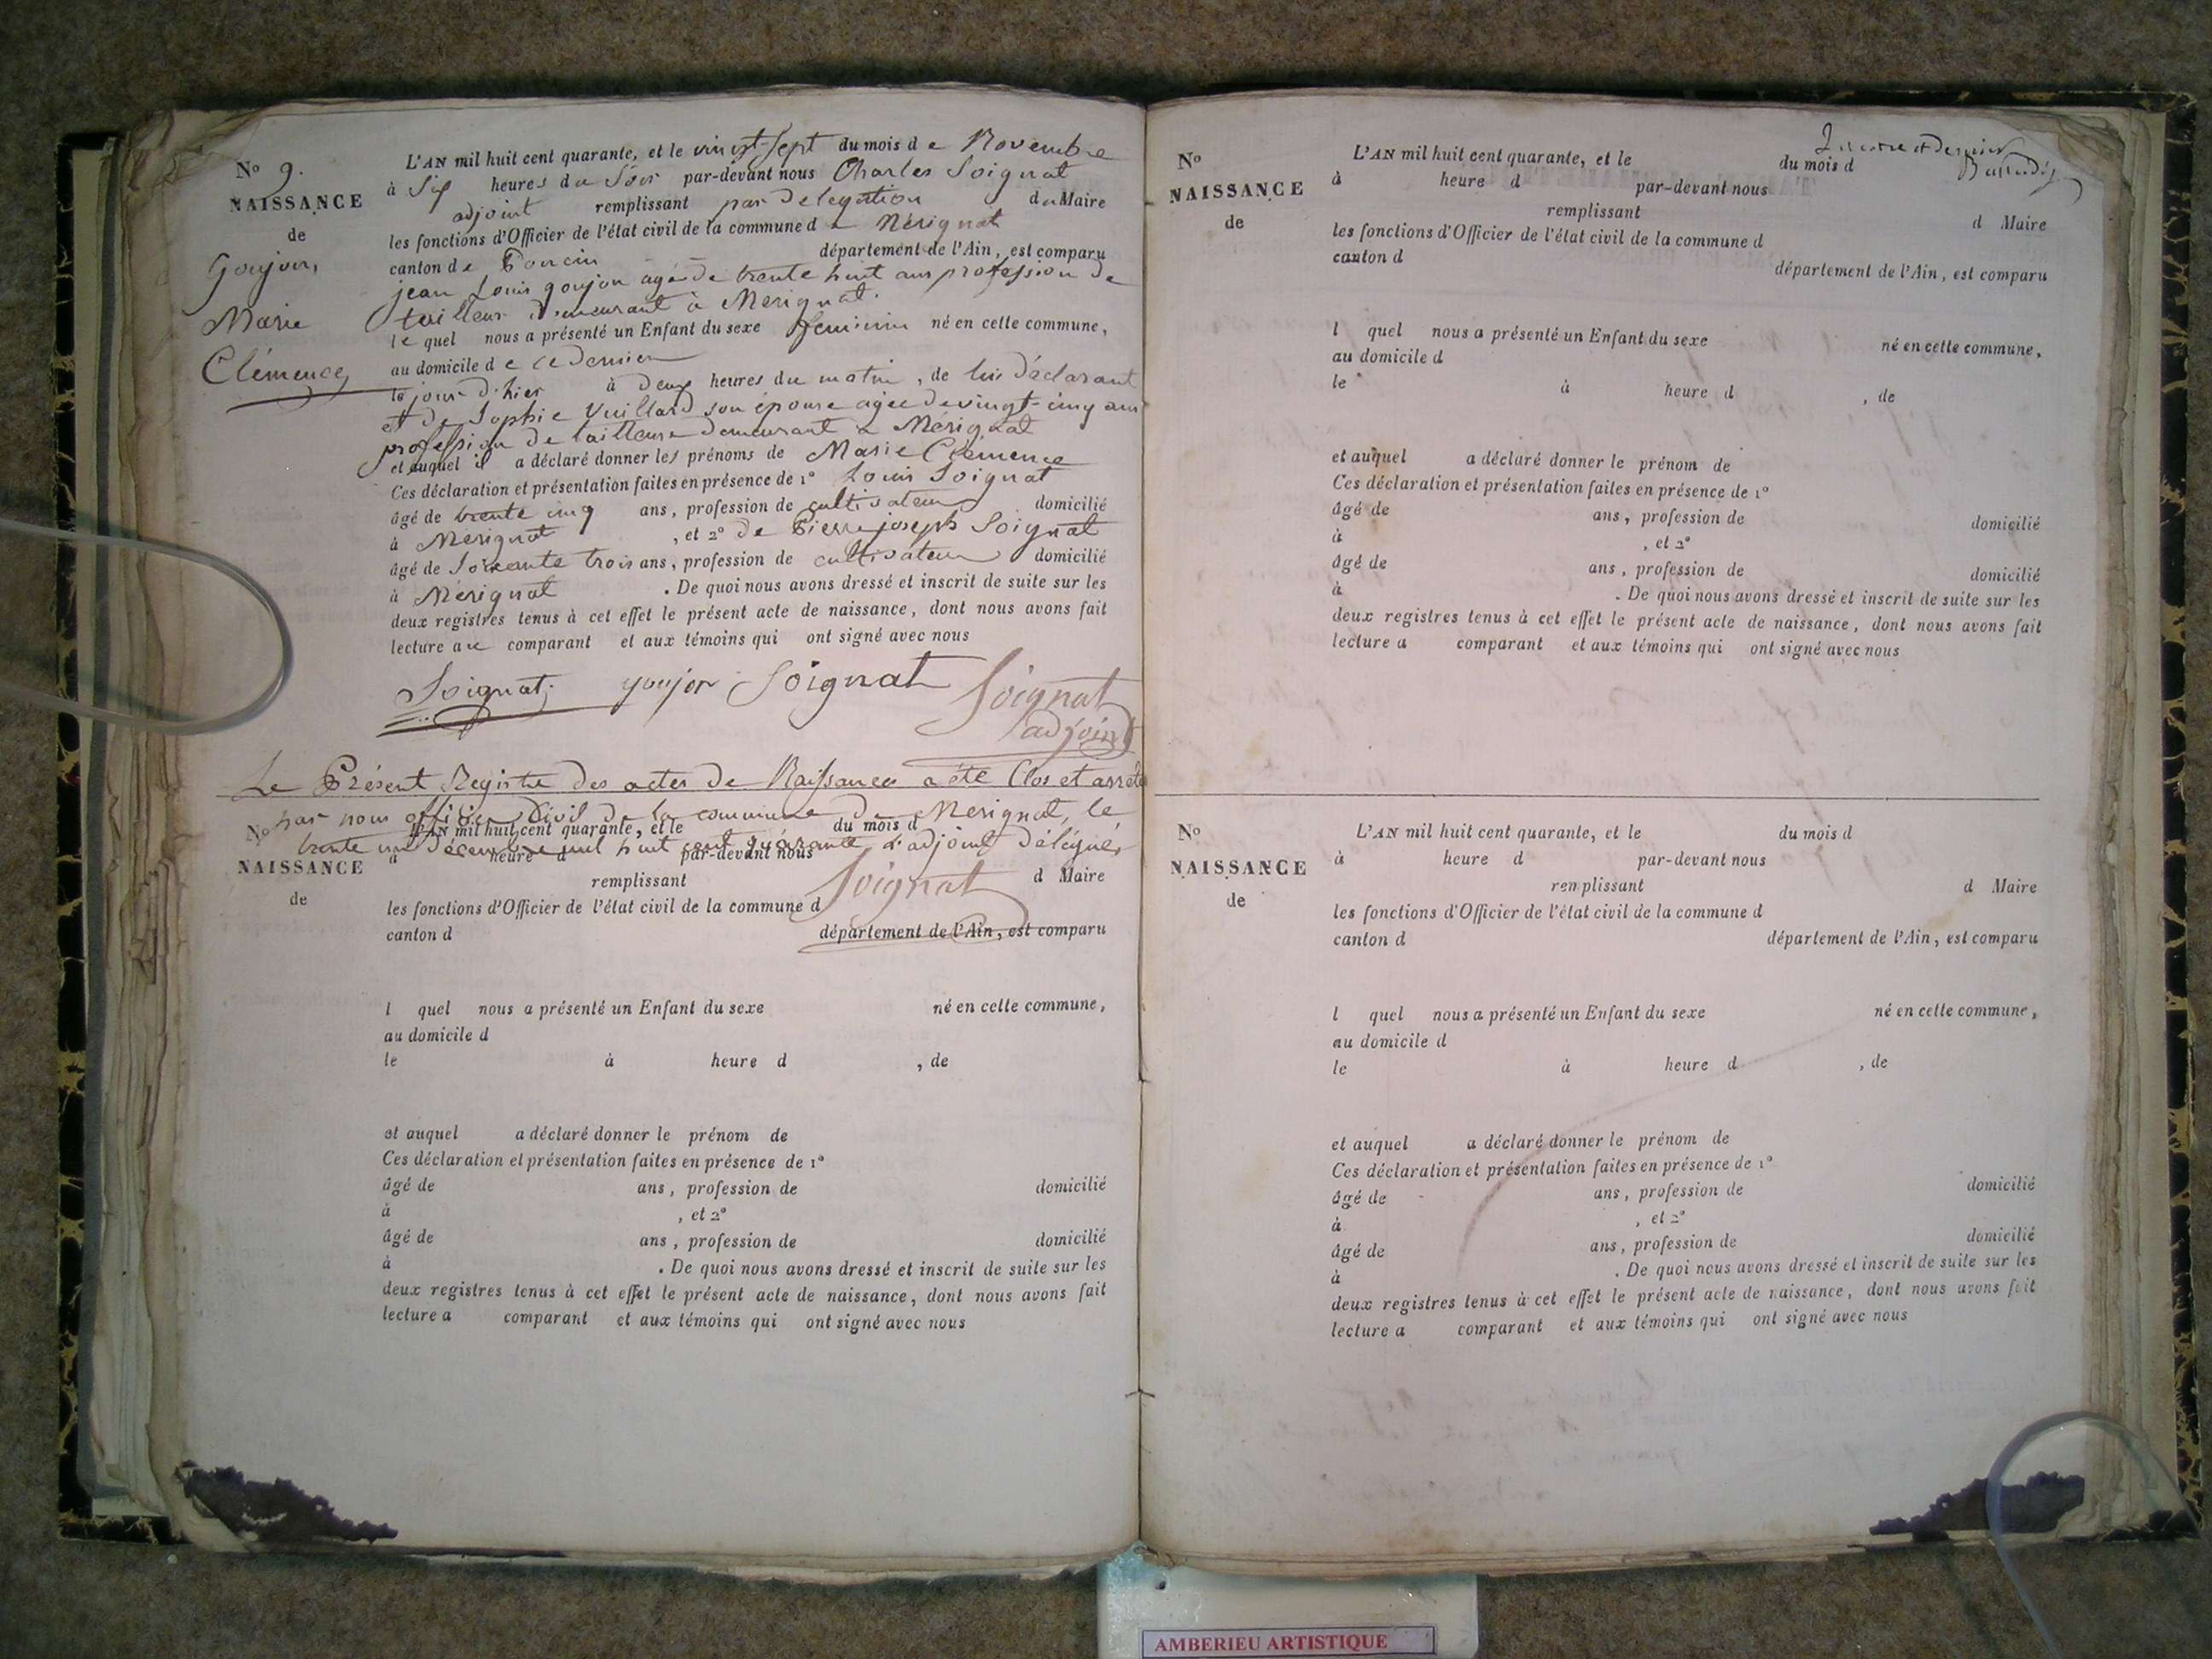 No 9.
NAISSANCE
de
Goujon,
Marie
Clémence
L'AN mil huit cent quarante, et le vingt-sept du mois de Novembre
à Six heures du Soir par-devant nous Charles Soignat
adjoint remplissant par délégation du Maire
les fonctions d'Officier de l'état civil de la commune de Mérignat
canton de Poncin département de l'Ain, est comparu
jean Louis goujon agé de trente huit ans profession de
tailleur demeurant à Mérignat.
le quel nous a présenté un Enfant du sexe feminin né en cette commune,
au domicile de ce dernier
le jour d'hier à deux heures du matin, de lui déclarant
et de Sophie Vuillard son épouse agée de vingt-cinq ans
profession de tailleuse demeurant à Mérignat
et auquel il a déclaré donner les prénoms de Marie Clémence
Ces déclaration et présentation faites en présence de 1º Louis Soignat
âgé de trente cinq ans, profession de cultivateur domicilié
à Mérignat, et 2º de Pierre joseph Soignat
âgé de Soixante trois ans, profession de cultivateur domicilié
à Mérignat. De quoi nous avons dressé et inscrit de suite sur les
deux registres tenus à cet effet le présent acte de naissance, dont nous avons fait
lecture au comparant et aux témoins qui ont signé avec nous
Soignat goujon Soignat Soignat
adjoint
Le Présent Registre des actes de Naissances a été Clos et arrêté
par nous officier Civil de la commune de Mérignat, le
trente un Décembre mil huit cent quarante l'adjoint délégué,
Soignat
No
NAISSANCE
de
L'AN mil huit cent quarante, et le du mois d
à heure d par-devant nous
remplissant d Maire
les fonctions d'Officier de l'état civil de la commune d
canton d département de l'Ain, est comparu
l quel nous a présenté un Enfant du sexe né en cette commune,
au domicile d
le à heure d , de
et auquel a déclaré donner le prénom de
Ces déclaration et présentation faites en présence de 1º
âgé de ans, profession de domicilié
à , et 2º
âgé de ans, profession de domicilié
à . De quoi nous avons dressé et inscrit de suite sur les
deux registres tenus à cet effet le présent acte de naissance, dont nous avons fait
lecture a comparant et aux témoins qui ont signé avec nous
et dernier
No
NAISSANCE
de
L'AN mil huit cent quarante, et le du mois d
à heure d par-devant nous
remplissant d Maire
les fonctions d'Officier de l'état civil de la commune d
canton d département de l'Ain, est comparu
l quel nous a présenté un Enfant du sexe né en cette commune,
au domicile d
le à heure d , de
et auquel a déclaré donner le prénom de
Ces déclaration et présentation faites en présence de 1º
âgé de ans, profession de domicilié
à , et 2º
âgé de ans, profession de domicilié
à . De quoi nous avons dressé et inscrit de suite sur les
deux registres tenus à cet effet le présent acte de naissance, dont nous avons fait
lecture a comparant et aux témoins qui ont signé avec nous
No
NAISSANCE
de
L'AN mil huit cent quarante, et le du mois d
à heure d par-devant nous
remplissant d Maire
les fonctions d'Officier de l'état civil de la commune d
canton d département de l'Ain, est comparu
l quel nous a présenté un Enfant du sexe né en cette commune,
au domicile d
le à heure d , de
et auquel a déclaré donner le prénom de
Ces déclaration et présentation faites en présence de 1º
âgé de ans, profession de domicilié
à , et 2º
âgé de ans, profession de domicilié
à . De quoi nous avons dressé et inscrit de suite sur les
deux registres tenus à cet effet le présent acte de naissance, dont nous avons fait
lecture a comparant et aux témoins qui ont signé avec nous
AMBERIEU ARTISTIQUE